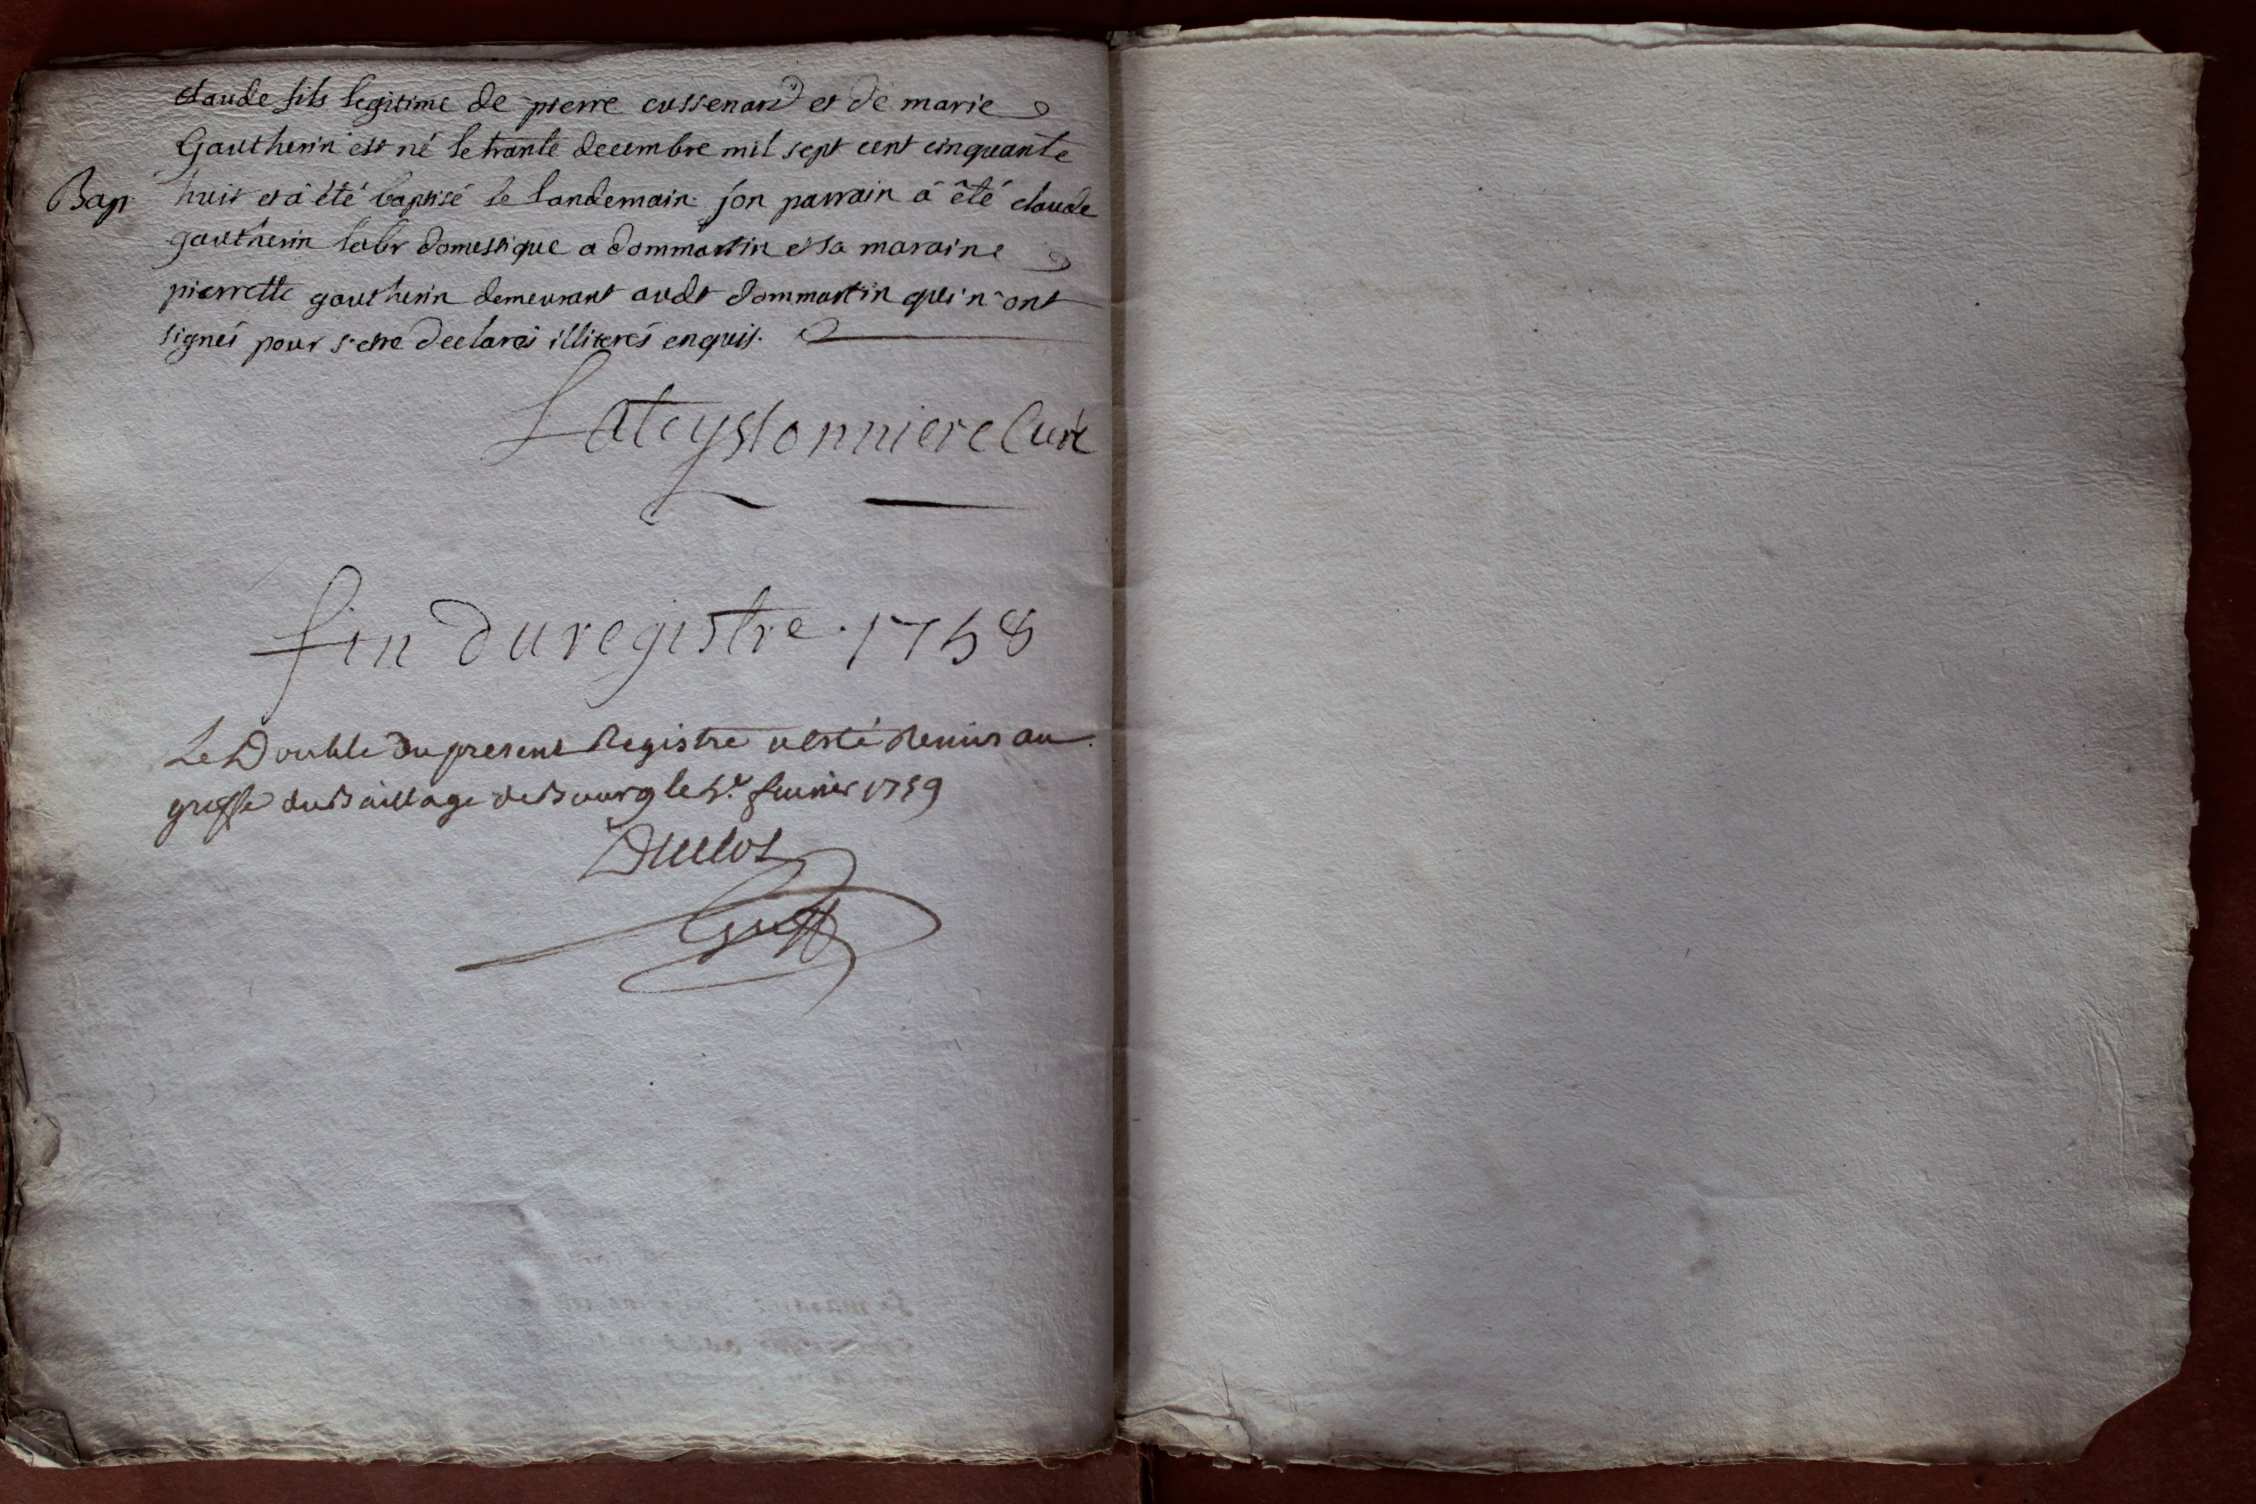 claude fils legitime de pierre cussenard et de marie
Gautherin est né le trante decembre mil sept cent cinquante
Bap huit et à été baptisé le landemain son parrain à êté claude
gautherin labr domestique a dommartin et sa maraine
pierrette gautherin demeurant audt dommartin qui n'ont
signés pour s'etre declarés illiterés enquis.
Lateyssonniere Curé
fin du registre 1758
Le Double du present Registre a esté Remis au
greffe du Baillage de Bourg le 5e fevrier 1759
Duclos
Greff